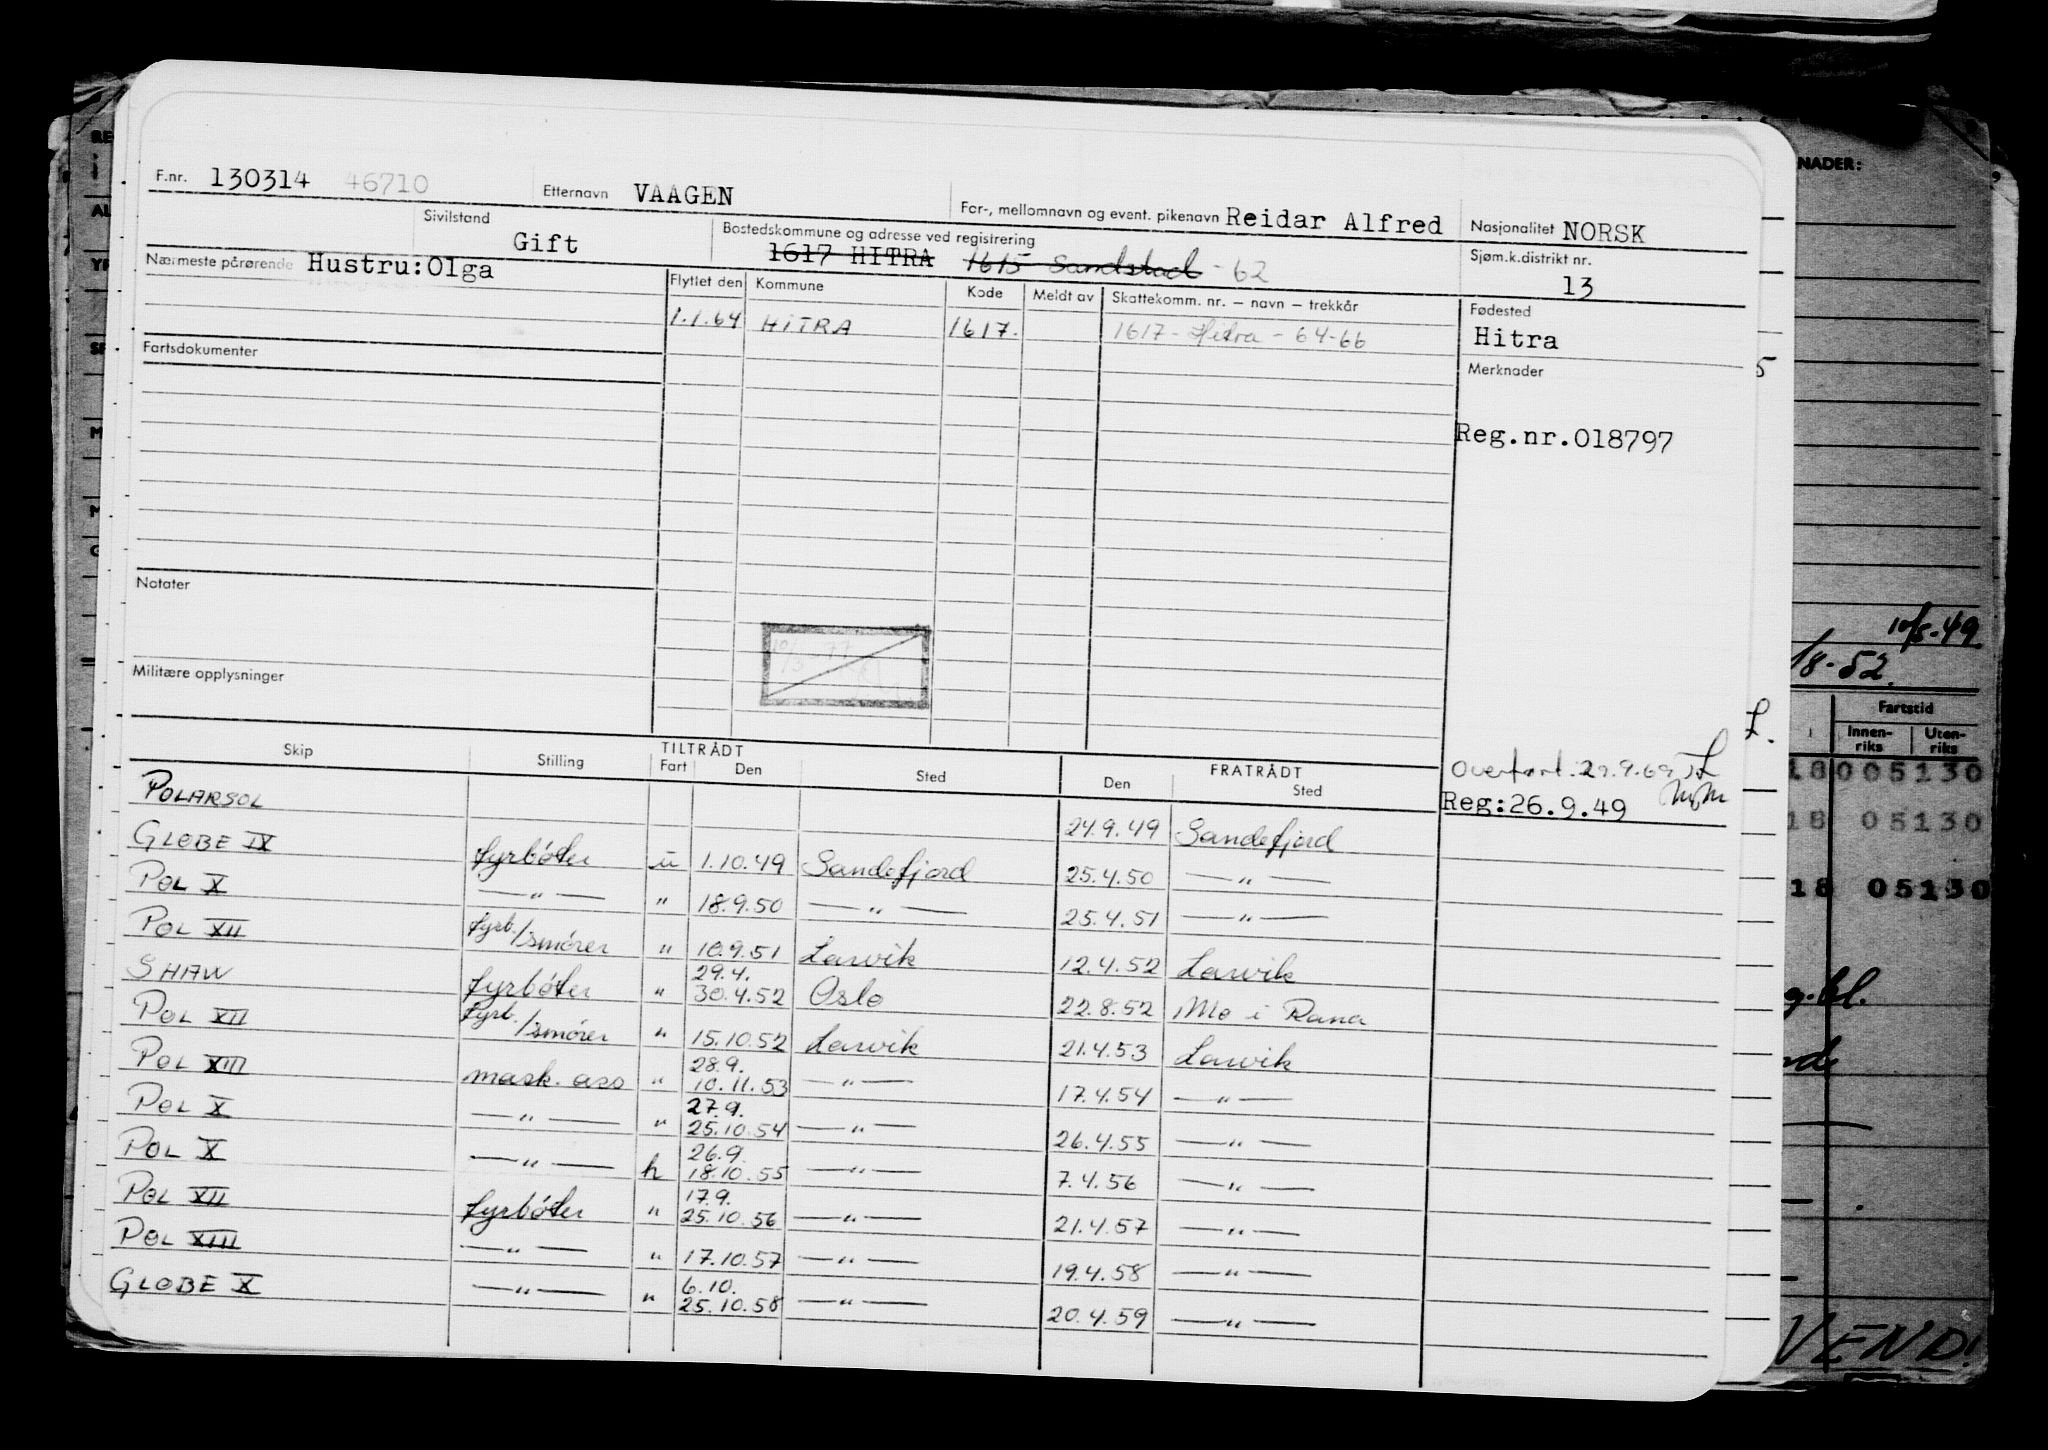 F.nr. 130314 46710 Etternavn VAAGEN For-, mellomnavn og event. pikenavn Reidar Alfred Nasjonalitet NORSK
Sivilstand Gift Bostedskommune og adresse ved registrering 1617 HITRA 1615 Sandstad - 62 Sjøm.k.distrikt nr. 13
Nærmeste pårørende Hustru:Olga Flyttet den Kommune Kode Meldt av Skattekomm. nr. — navn — trekkår Fødested
1.1.64 HITRA 1617. 1617 - Hitra - 64-66 Hitra
Fartsdokumenter Merknader
Reg.nr.018797
Notater
Militære opplysninger
Skip Stilling TILTRÅDT Fart Den Sted FRATRÅDT Den Sted
Overført 29.9.69
Reg:26.9.49
POLARSOL 24.9.49 Sandefjord
GLOBE IX fyrbøter u 1.10.49 Sandefjord 25.4.50 —"—
POL X —"— " 18.9.50 —"— 25.4.51 —"—
POL XII fyrb./smører " 10.9.51 Larvik 12.4.52 Larvik
SHAW fyrbøter " 29.4. 30.4.52 Oslo 22.8.52 Mo i Rana
POL XII fyrb./smører " 15.10.52 Larvik 21.4.53 Larvik
POL XIII mask. ass " 28.9. 10.11.53 —"— 17.4.54 —"—
POL X —"— " 27.9. 25.10.54 —"— 26.4.55 —"—
POL X —"— h 26.9. 18.10.55 —"— 7.4.56 —"—
POL XII fyrbøter " 17.9. 25.10.56 —"— 21.4.57 —"—
POL XIII —"— " 17.10.57 —"— 19.4.58 —"—
GLOBE X —"— " 6.10. 25.10.58 —"— 20.4.59 —"—
NADER:
10/5-49
/8-52.
Fartstid
Innen-riks Uten-riks
18 005130
18 05130
18 05130
VEND!